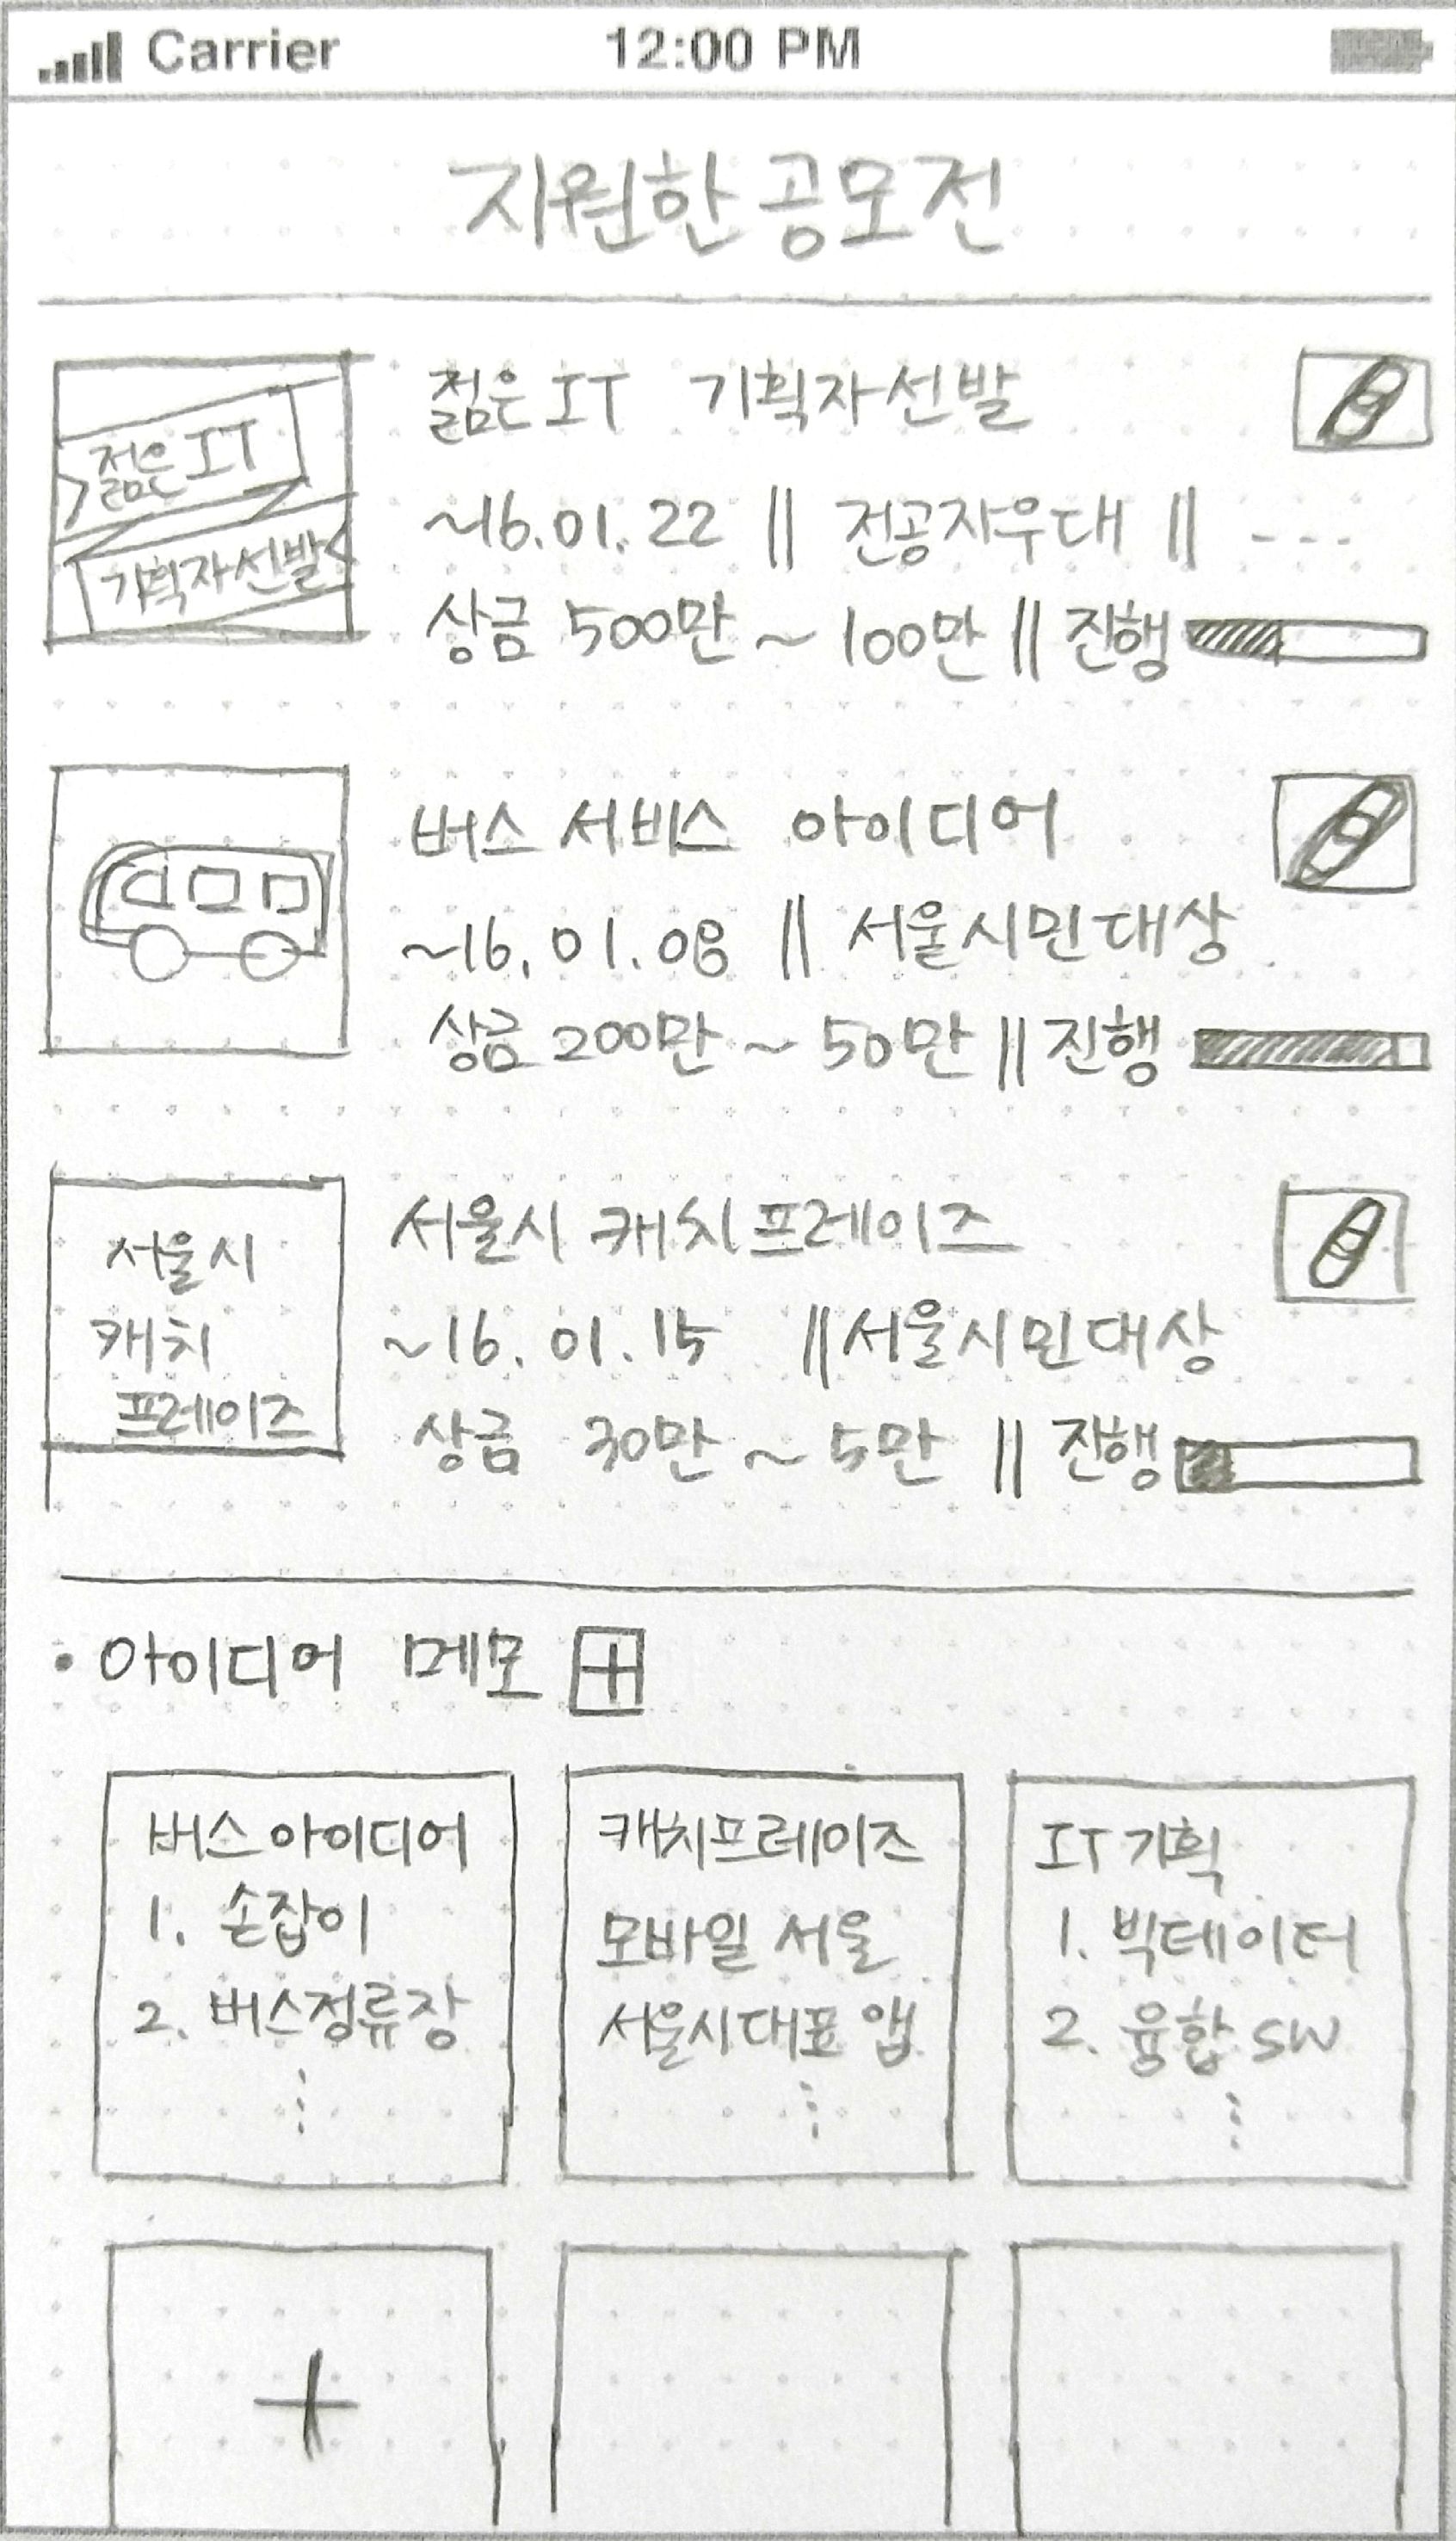 Carrier 12:00 PM
지원한 공모전
젊은 IT
기획자 선발
젊은 IT 기획자 선발
~16.01.22 || 전공자우대 || ---
상금 500만 ~ 100만 || 진행
버스 서비스 아이디어
~16.01.08 || 서울시민 대상
상금 200만 ~ 50만 || 진행
서울시
캐치
프레이즈
서울시 캐치프레이즈
~16.01.15 || 서울시민대상
상금 30만 ~ 5만 || 진행
• 아이디어 메모 +
버스 아이디어
1. 손잡이
2. 버스정류장
⋮
캐치프레이즈
모바일 서울
서울시대표 앱
⋮
IT 기획
1. 빅데이터
2. 융합 SW
⋮
+